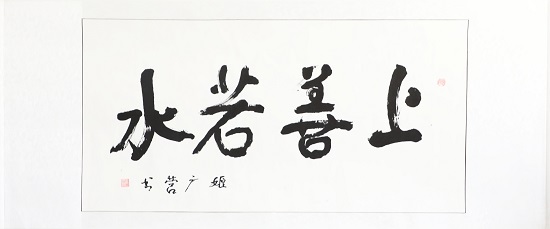 上善若水
姬广營书